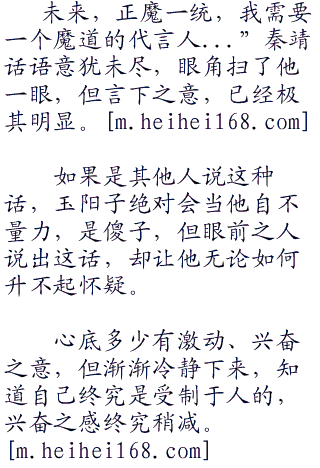 未来，正魔一统，我需要
一个魔道的代言人...”秦靖
话语意犹未尽，眼角扫了他
一眼，但言下之意，已经极
其明显。[m.heihei168.com]
如果是其他人说这种
话，玉阳子绝对会当他自不
量力，是傻子，但眼前之人
说出这话，却让他无论如何
升不起怀疑。
心底多少有激动、兴奋
之意，但渐渐冷静下来，知
道自己终究是受制于人的，
兴奋之感终究稍减。
[m.heihei168.com]